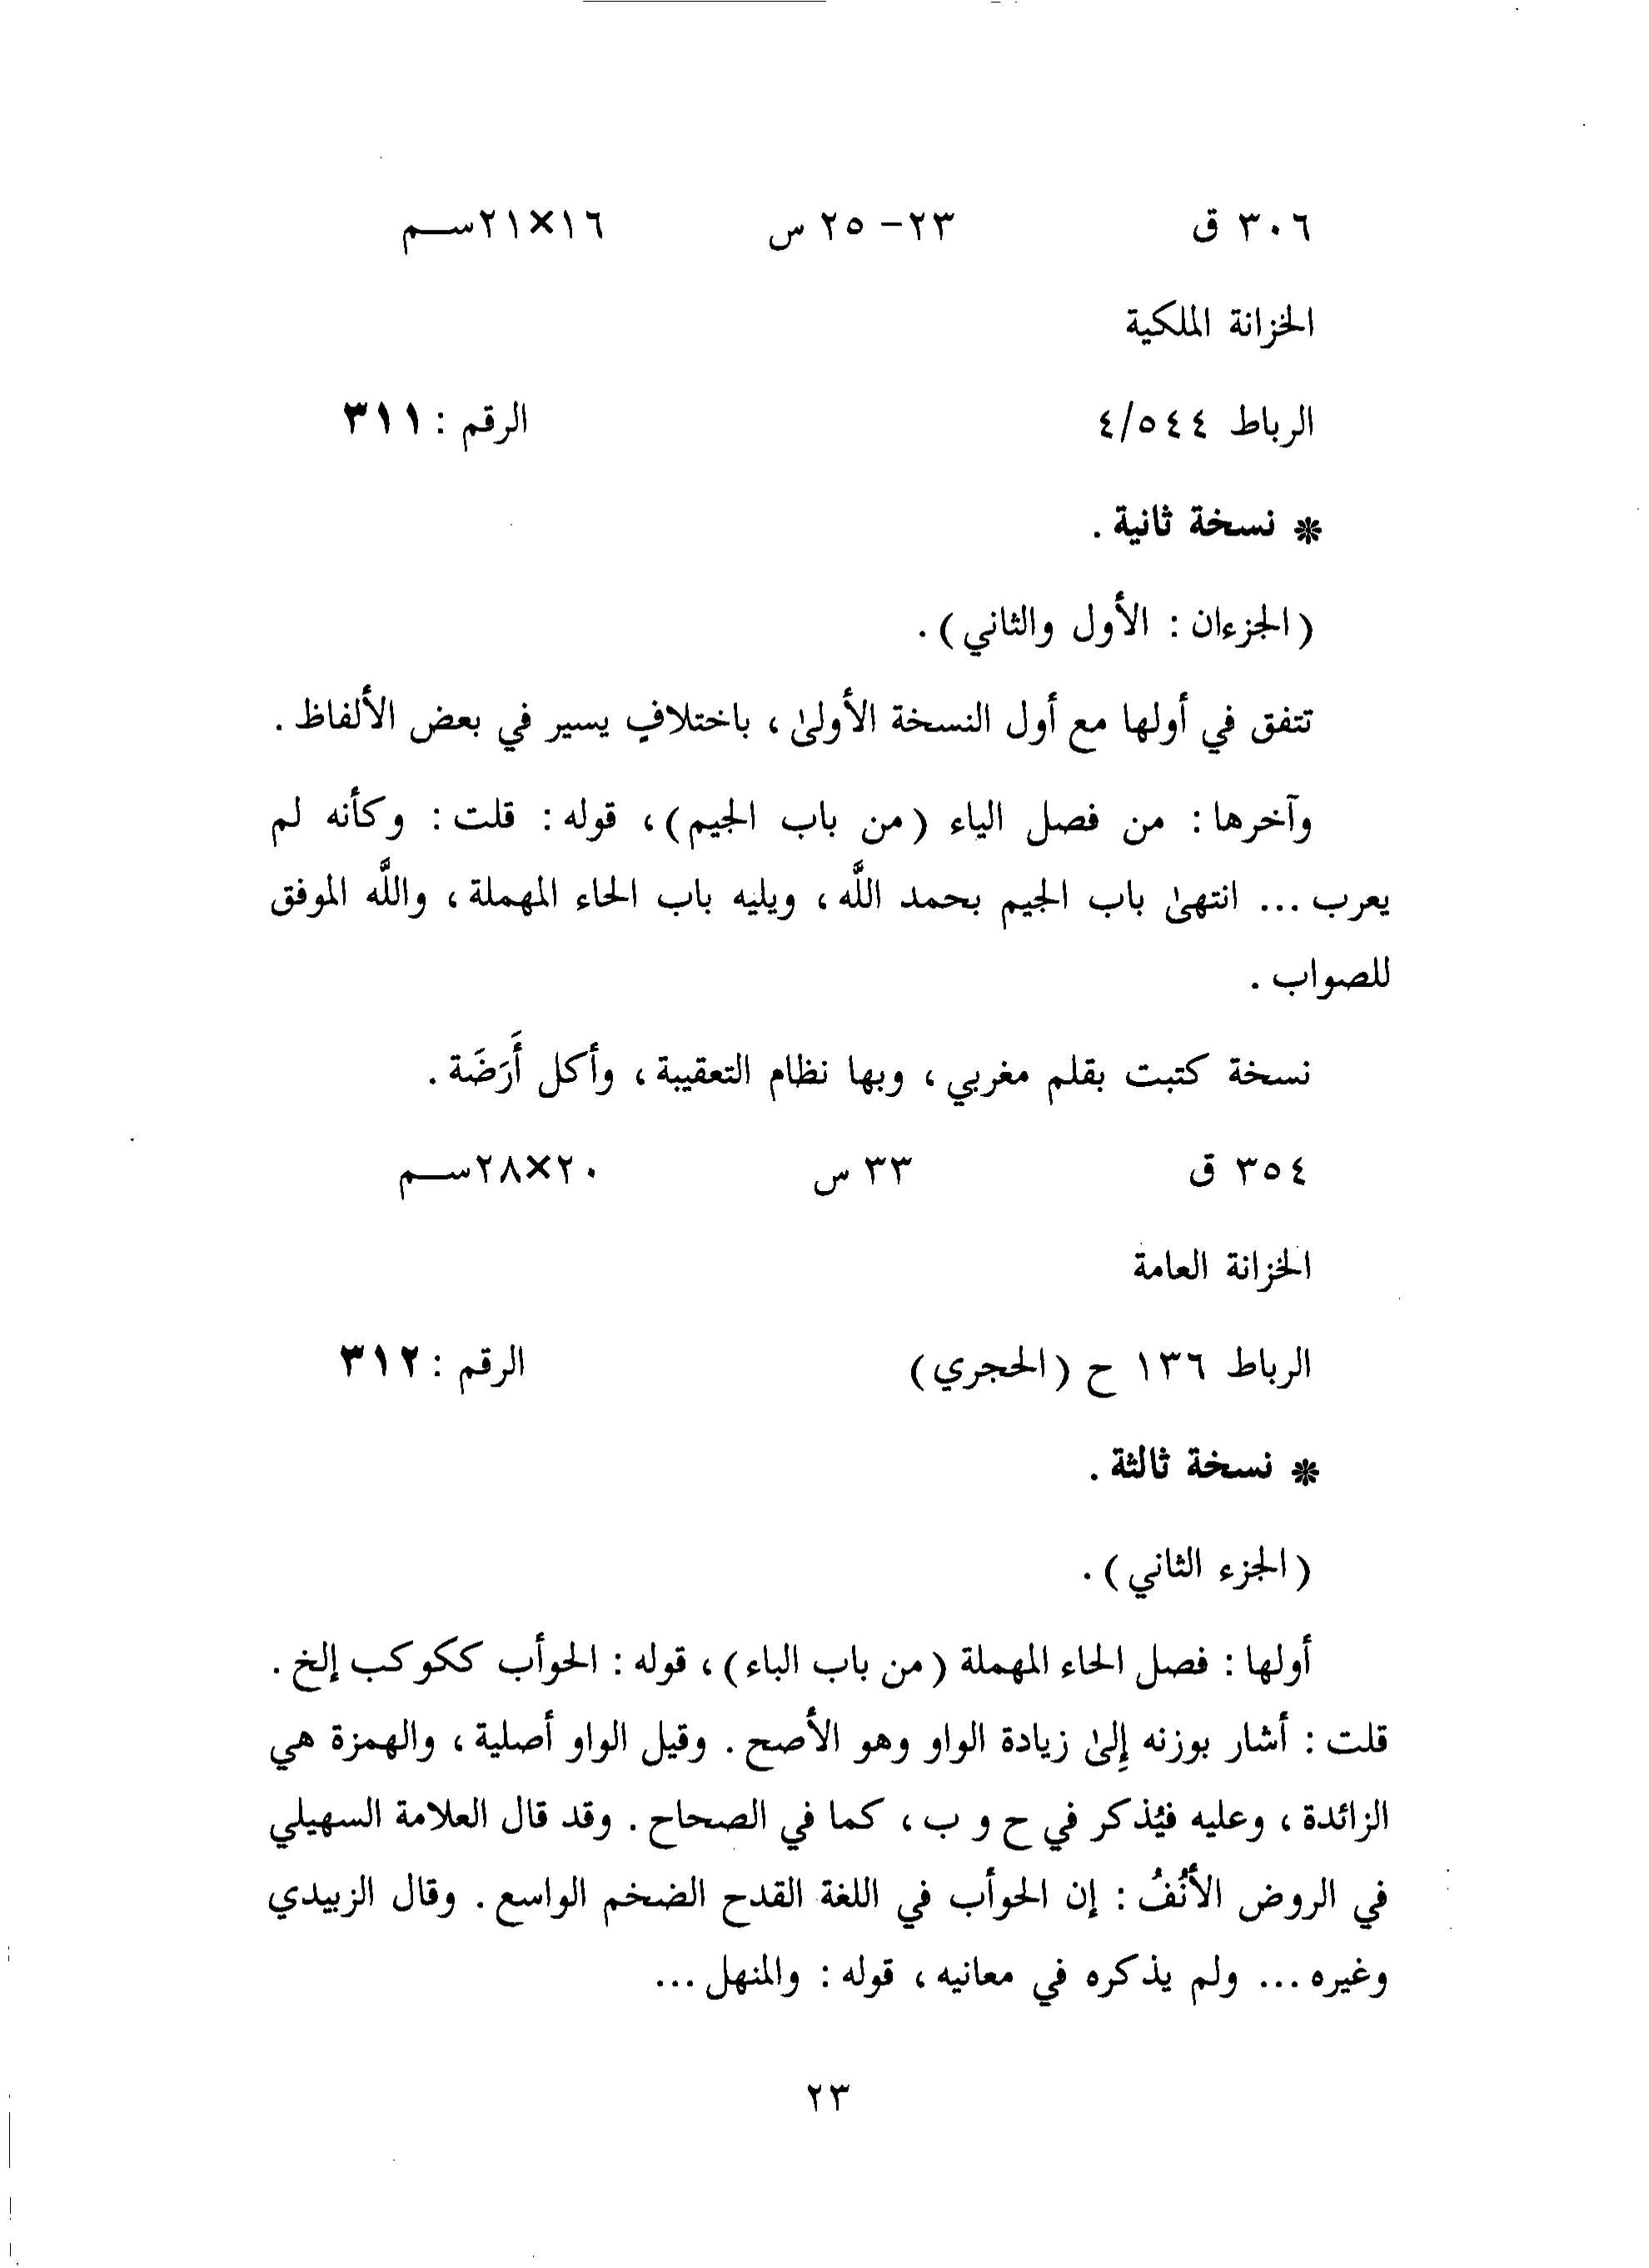 ٣٠٦ ق ٢٣- ٢٥ س ١٦×٢١سـم
الخزانة الملكية
الرباط ٤/٥٤٤ الرقم : ٣١١
* نسخة ثانية .
(الجزءان : الأول والثاني) .
تتفق في أولها مع أول النسخة الأولىٰ، باختلافٍ يسير في بعض الألفاظ .
وآخرها: من فصل الياء (من باب الجيم)، قوله: قلت: وكأنه لم
يعرب ... انتهىٰ باب الجيم بحمد اللَّه، ويليه باب الحاء المهملة، واللَّه الموفق
للصواب .
نسخة كتبت بقلم مغربي، وبها نظام التعقيبة، وأكل أَرَضَة .
٣٥٤ ق ٣٣ س ٢٠×٢٨سـم
الخزانة العامة
الرباط ١٣٦ ح (الحجري) الرقم : ٣١٢
* نسخة ثالثة .
(الجزء الثاني) .
أولها : فصل الحاء المهملة (من باب الباء)، قوله : الحوأب ككوكب إلخ .
قلت : أشار بوزنه إلىٰ زيادة الواو وهو الأصح . وقيل الواو أصلية، والهمزة هي
الزائدة، وعليه فيُذكر في ح و ب، كما في الصحاح . وقد قال العلامة السهيلي
في الروض الأُنُفُ : إن الحوأب في اللغة القدح الضخم الواسع . وقال الزبيدي
وغيره ... ولم يذكره في معانيه، قوله : والمنهل ...
٢٣